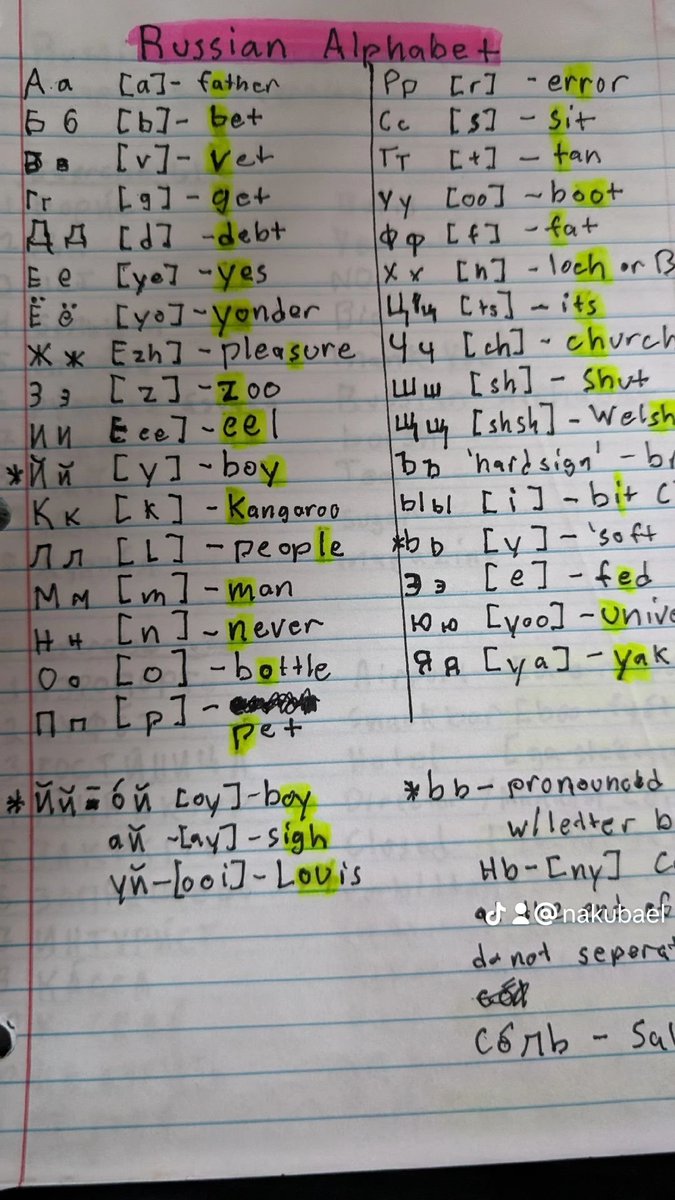 Russian Alphabet
А а [a] - father
Б б [b] - bet
В в [v] - vet
Гг [g] - get
Д д [d] - debt
Е е [ye] - yes
Ё ё [yo] - yonder
Ж ж [zh] - pleasure
З з [z] - zoo
И И [ee] - eel
*Й й [y] - boy
К к [k] - Kangaroo
Л л [L] - people
М м [m] - man
Н н [n] - never
О о [o] - bottle
П п [p] -
pet
Рр [r] - error
Сс [s] - sit
Тт [t] - tan
Уу [oo] - boot
Ф ф [f] - fat
Х х [h] - loch or B
Цц [ts] - its
Ч ч [ch] - church
Шш [sh] - Shut
Щщ [shsh] - Welsh
Ъъ 'hard sign' - br
ЫЫ [i] - bit
*Ьь [y] - 'soft
Э э [e] - fed
Ю ю [yoo] - Unive
Я я [ya] - yak
*Йй = óй [oy] - boy
ай - [ay] - sigh
уй - [ooi] - Louis
*Ьь - pronounced
w/letter b
Нь - [ny]
@nakubael
do not seperat
Сóль - Sal